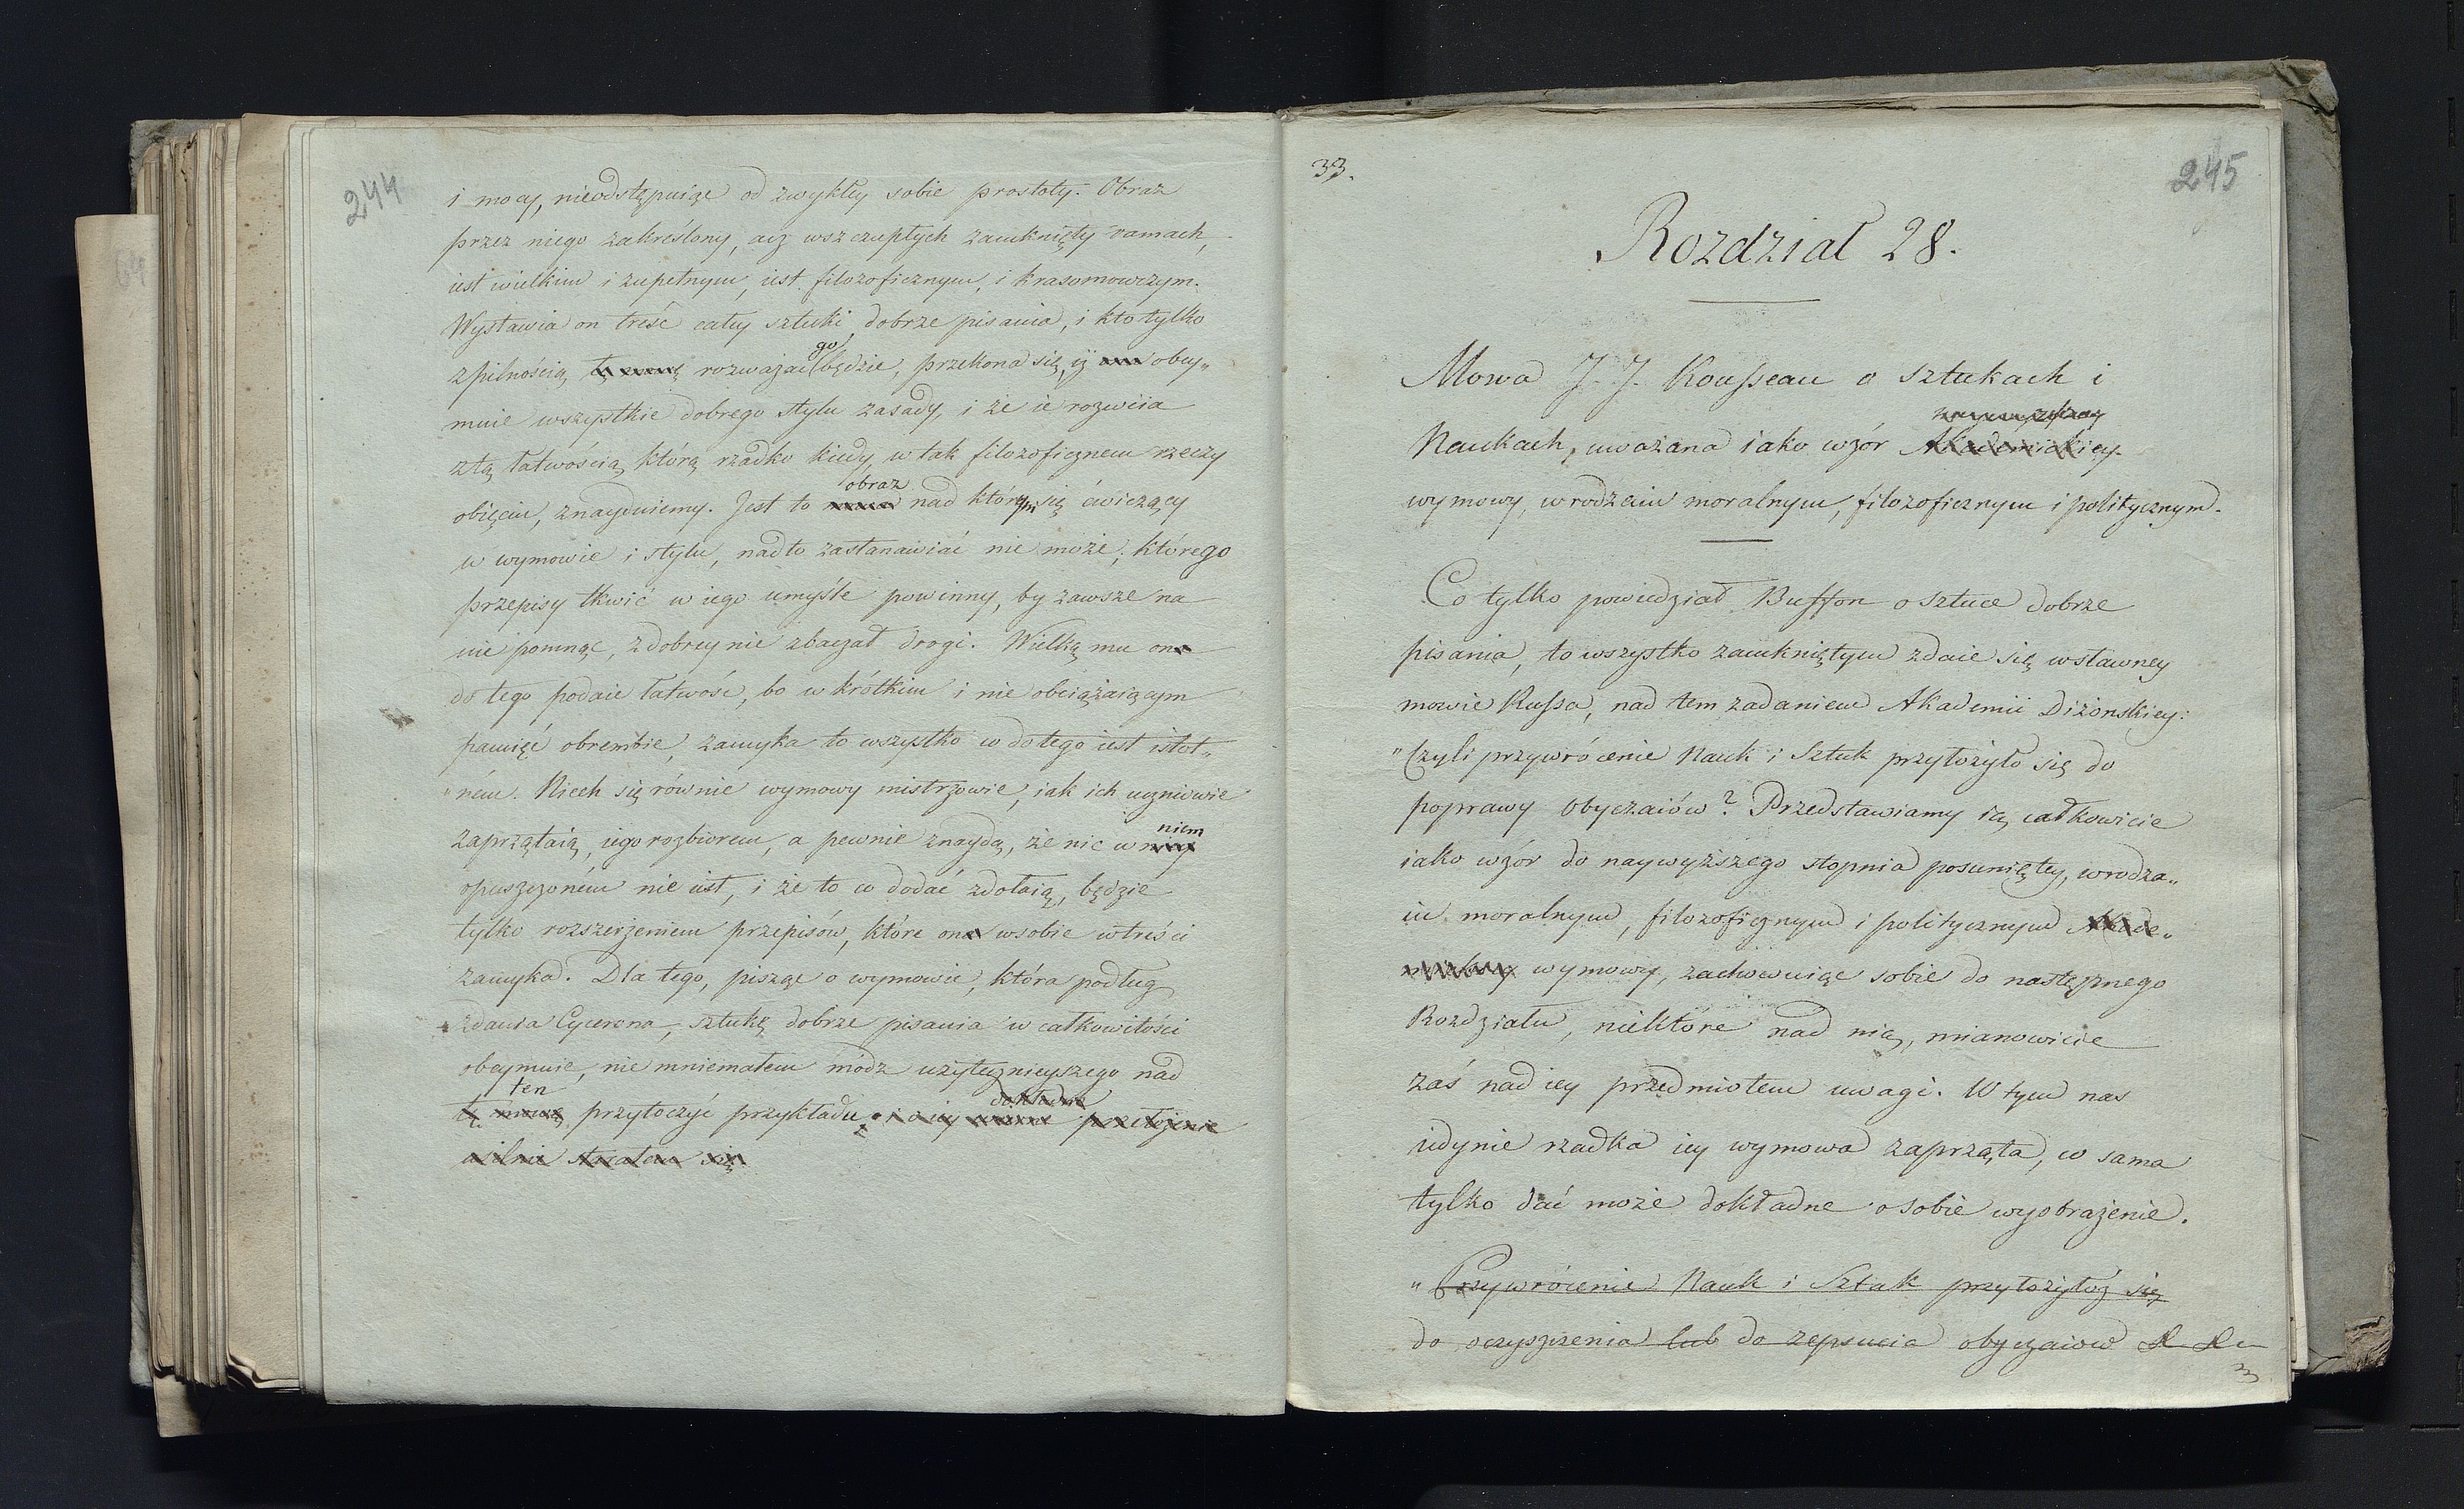 244
i mocy, nieodstępuiąc od zwykłey sobie prostoty. Obraz
przez niego zakreślony, acz wszczupłych zamknięty ramach,
iest wielkim i zupełnym, iest filozoficznym, i krasomowczym.
Wystawia on treść całey sztuki dobrze pisania, i kto tylko
go
zpilnością, tę mowę rozważać będzie, przekona się, iż ona obey„
muie wszystkie dobrego stylu zasady, i że ie rozwiia
ztą łatwością, którą rzadko kiedy, w tak filozoficznem rzeczy
obraz
obięciu, znayduiemy. Jest to mowa nad którym się ćwiczący
w wymowie i stylu, nadto zastanawiać nie może; którego
przepisy tkwić w iego umyśle powinny, by zawsze na
nie pomnąc, zdobrey nie zbaczał drogi. Wielką mu on
do tego podaie łatwość, bo w krótkim i nie obciążaiącym
pamięć obrembie, zamyka to wszystko co do tego iest istot„
„ném. Niech się równie wymowy mistrzowie, iak ich uczniowie
niem
zaprzątaią, iego rozbiorem, a pewnie znaydą, że nic w niey
opuszczoném nie iest, i że to co dodać zdołaią, będzie
tylko rozszerzeniem przepisów, które on wsobie wtreści
zamyka. Dla tego, pisząc o wymowie, która podług
zdania Cycerona, sztukę dobrze pisania w całkowitości
obeymuie, nie mniemałem módz użytecznieyszego nad
ten dokładne
tę mowę przytoczyć przykładu. i o iey wierne przełożenie
usilnie starałem się
33.
245
Rozdział 28.
Mowa J. J. Rousseau o sztukach i
Naukach, uważana iako wzór Akademickiey
wymowy, w rodzaiu moralnym, filozoficznym i politycznym.
Co tylko powiedział Buffon o sztuce dobrze
pisania, to wszystko zamkniętym zdaie się wsławney
mowie Russa, nad tem zadaniem Akademii Diżonskiey:
„Czyli przywrócenie Nauk i Sztuk przyłożyło się do
poprawy Obyczaiów? Przedstawiamy ią całkowicie
iako wzór do naywyższego stopnia posuniętey, wrodza„
iu moralnym, filozoficznym i politycznym Akade„
mickiey wymowy, zachowuiąc sobie do następnego
Rozdziału, niektóre nad nią, mianowicie
zaś nad iey przedmiotem uwagi. W tym nas
iedynie rzadka iey wymowa zaprząta, co sama
tylko dać może dokładne o sobie wyobrażenie.
„Przywrócenie Nauk i Sztuk przyłożyłoż się
do oczyszczenia lub do zepsucia obyczaiow